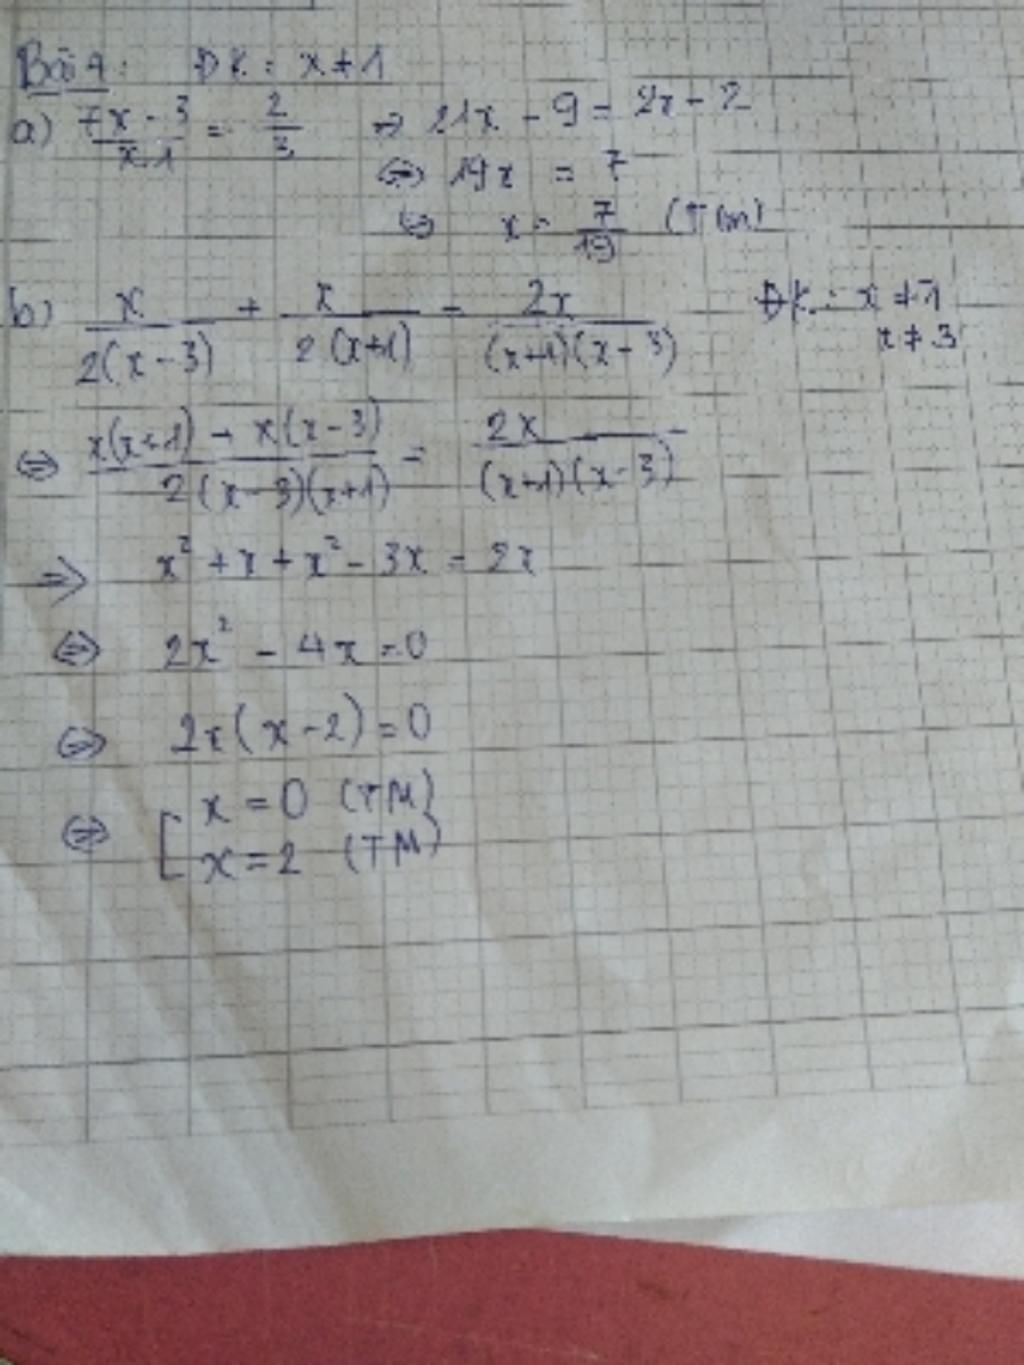 Bài 4: ĐK: x ≠ 1
a) (7x - 3)/(x-1) = 2/3 => 21x - 9 = 2x - 2
<=> 19x = 7
<=> x = 7/19 (TM)
b) x/(2(x-3)) + x/(2(x+1)) = 2x/((x+1)(x-3)) ĐK: x ≠ -1
x ≠ 3
<=> (x(x+1) + x(x-3))/(2(x-3)(x+1)) = 2x/((x+1)(x-3))
=> x² + x + x² - 3x = 2x
<=> 2x² - 4x = 0
<=> 2x(x-2) = 0
<=> [ x = 0 (TM)
x = 2 (TM)